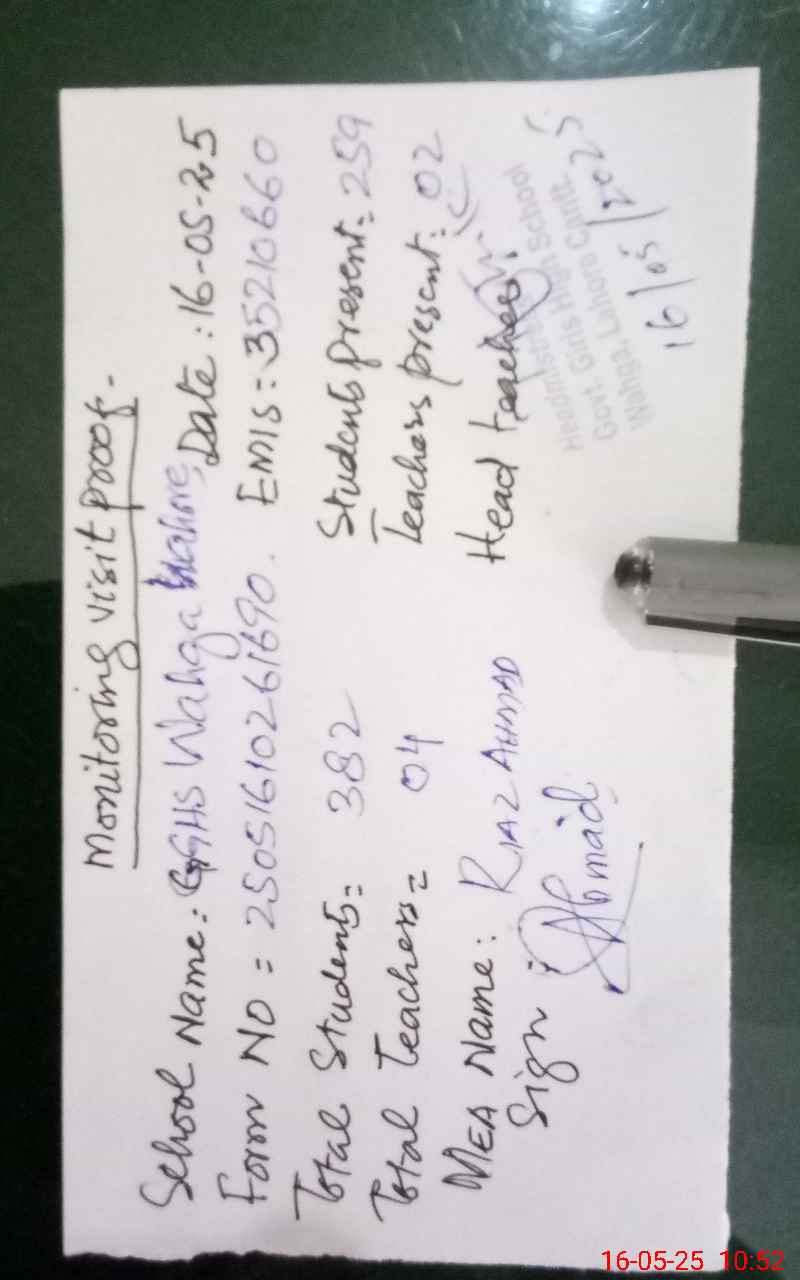 Monitoring visit proof.
School Name: GGHS Wahga Lahore, Date: 16-05-25
Form NO = 25051610261690. EMIS = 35210660
Total Students = 382 Students present = 259
Total Teachers = 04 Teachers present: 02
MEA Name: RIAZ AHMAD Head teachers:
Sign: Ahmad
Headmistress
Govt. Girls High School
Wahga, Lahore Cantt.
16/05/2025
16-05-25 10:52